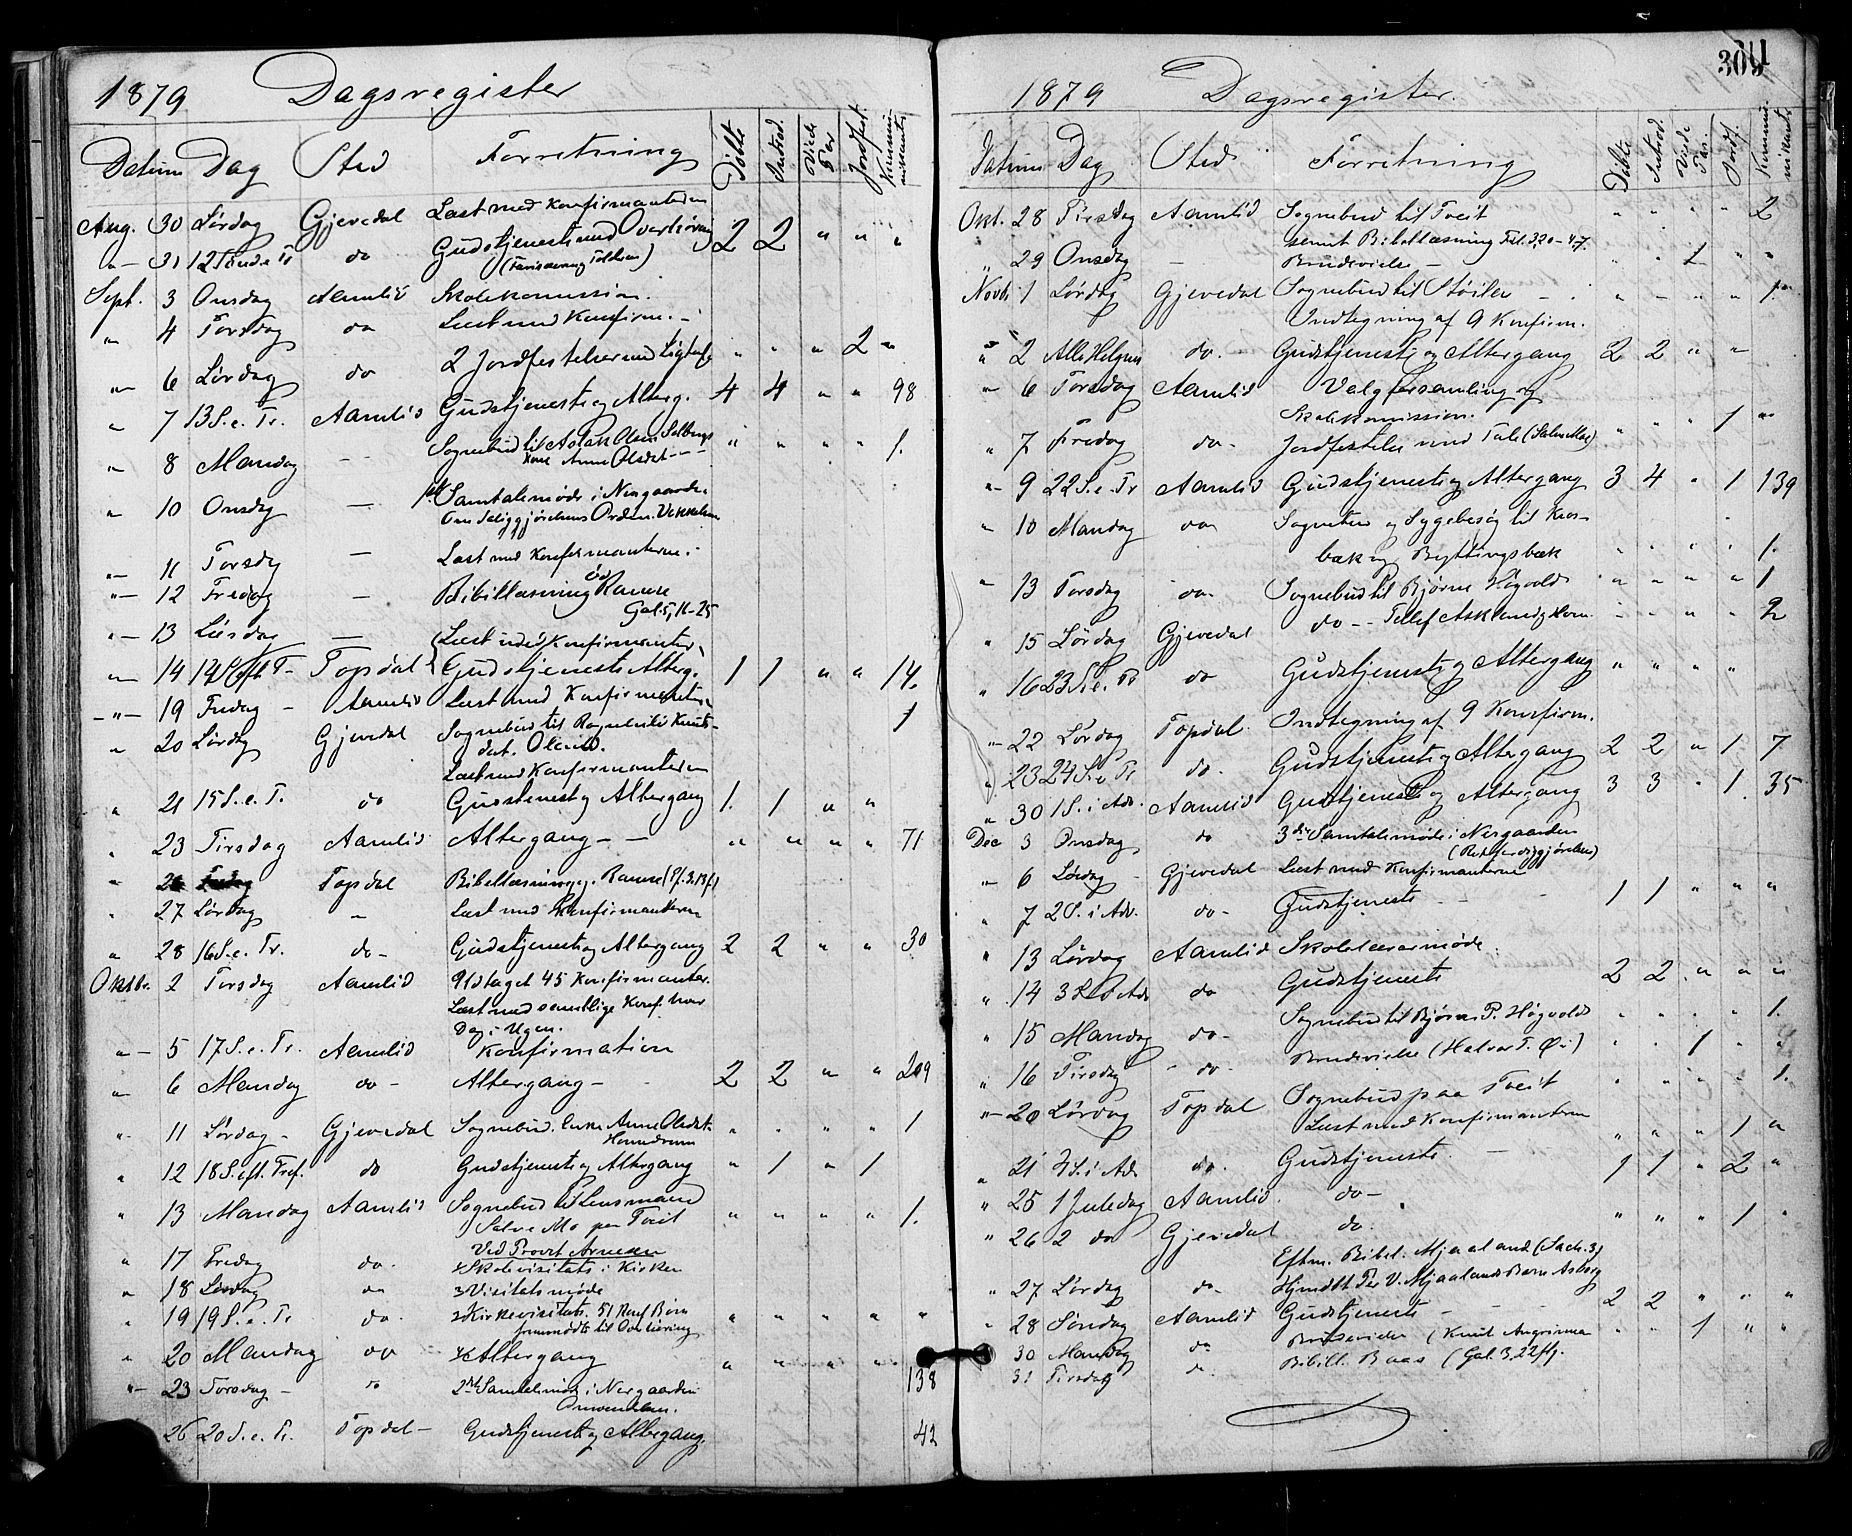 1879 Dagsregister
Datum Dag Sted Forretning Døbte Introd. Viede Par Jordfest. Kommunikanter
Aug. 30 Lørdag Gjevedal Læst med Konfirmanterne
" 31 12 Sønd. e. Tr do Gudstjeneste med Overhøring 2 2 " " "
Sept. 3 Onsdag Aamlid Skolekomission.
" 4 Torsdag do Læst med Konfirm. -
" 6 Lørdag do 2 Jordfestelser med Ligtale " " " 2 "
" 7 13 S. e. Tr. Aamlid Gudstjeneste og Alterg. 4 4 " " 98
" 8 Mandag - - Sognebud til Aslak Olsens
Kone Anne Olsdat - - " " " " 1.
" 10 Onsdag - 1ste Samtalemøde i Nergaarden.
Om Saliggjørelsens Orden. Vækkelsen
" 11 Torsdg - Læst med Konfirmanterne.
" 12 Fredag - Bibellæsning Ramse
Gal. 5, 16-25
" 13 Lørdag - Læst med Konfirmanter
" 14 14 S. eft. Tr Topdal Gudstjeneste Alterg. 1 1 " " 14.
" 19 Fredag - Aamlid Læst med Konfirmanter
" 20 Lørdag Gjevedal Sognebud til Ragnhild Knuts-
dat. 1
Læst med Konfirmanterne
" 21 15 S. e. T. do Gudstenest og Altergang 1. 1 " "
" 23 Tirsdag Aamlid Altergang - - " " " " 71
" 26 Fredag Topdal Bibellæsning Ramse
" 27 Lørdag - Læst med Konfirmanterne
" 28 16 S. e. Tr. do - Gudstjeneste og Altergang 2 2 " " 30
Oktbr. 2 Torsdag Aamlid Udtaget 45 Konfirmanter.
Læst med samtlige Konf. hver
Dag i Ugen.
" 5 17 S. e. Tr. Aamlid Konfirmation
" 6 Mandag do - Altergang - 2 2 " " 209
" 11 Lørdag - Gjevedal Sognebud. Enke Anne Olsdat.
" " " " 1
" 12 18 S. eft. Tref. do Gudstjeneste og Altergang " 1 " 1
" 13 Mandag Aamlid Sognebud til Lensmand
Salve Mo paa Tveit " " " " 1.
Ved Provst Arnesen
" 17 Fredag do. Skolevisitats i Kirken
" 18 Lørdag do 3 Visitatsmøde
" 19 19 S. e. Tr do. Kirkevisitats. 51 Konf Børn
fremmødte til Overhøring " " " " "
" 20 Mandag do Altergang " " " " 138
" 23 Torsdag - do 2det Samtalemøde i Nergaarden
Omvendelsen.
26 20 S. e. Tr. Topdal - Gudstjeneste og Altergang. 42
309
1879 Dagsregister.
Datum Dag Sted Forretning Døbte Introd. Viede Par. Jordf. Kommunikant.
Okt. 28 Tirsdag Aamlid Sognebud til Tveit " " " " 2
samt Bibellæsning Fil. 3,20-4,7.
" 29 Onsdag - Brudevielse - " " 1 " "
Novb. 1 Lørdag Gjevedal Sognebud til Støilen " " " " 1.
Indtegning af 9 Konfirm.
" 2 Alle Helgens do. Gudstjeneste og Altergang 2 2 " "
" 6 Torsdag Aamlid Valgforsamling og
Skolekomission.
" 7 Fredag do - Jordfestelse med Tale (Salve Moe) " " " 1 "
" 9 22 S. e. Tr Aamlid Gudstjeneste og Altergang 3 4 " 1 139
" 10 Mandag do Sognebud og Sygebesøg til
" " " " 1.
" 13 Torsdag do Sognebud til Bjørn Høgvold " " " " 1
" 15 Lørdag Gjevedal do - Tellef Askland og Kone " " " " 2
" 16 23 S. e. Tr do Gudstjeneste og Altergang " " " "
" 22 Lørdag Topdal. Indtegning af 9 Konfirm.
" 23 24 S. e Tr do. Gudstjeneste og Altergang 2 2 " 1. 7
" 30 1 S. i Adv. Aamlid Gudstjeneste og Altergang 3 3 " 1. 35
Dec 3 Onsdag do 3die Samtalemøde i Nergaarden
(Retfærdiggjørelsen)
" 6 Lørdag - Gjevedal Læst med Konfirmanterne
" 7 2 S. i Adv. do - Gudstjeneste - 1 1 " " "
" 13 Lørdag Aamlid Skolelærermøde.
" 14 3 S. i Adv do Gudstjeneste 2 2 " " "
" 15 Mandag do - Sognebud til Bjørn P. Høgvold " " " " 1.
" 16 Tirsdag - do - Brudevielse (Halvor T. Øi) " " 1 " "
" 20 Lørdag Topdal Sognebud paa Tveit " " " " 1.
Læst med Konfirmanterne
" 21 4 S. i Adv do. Gudstjeneste. - " " " 1 "
" 25 1 Juledag Aamlid. do - 1 1 " 2 "
" 26 2 do Gjevedal do. " " " 1 "
Eftm. Bibel. Mjaaland (Sach. 3)
" 27 Lørdag do Hjmdbt Per V. Mjaalands Barn Asborg
" 28 Søndag Aamlid Gudstjeneste - - - 2 2 " " "
" 30 Mandag do Brudevielse (Knut " " 1 " "
31 Tirsdag do Bibell. Baas (Gal. 3,22flg.